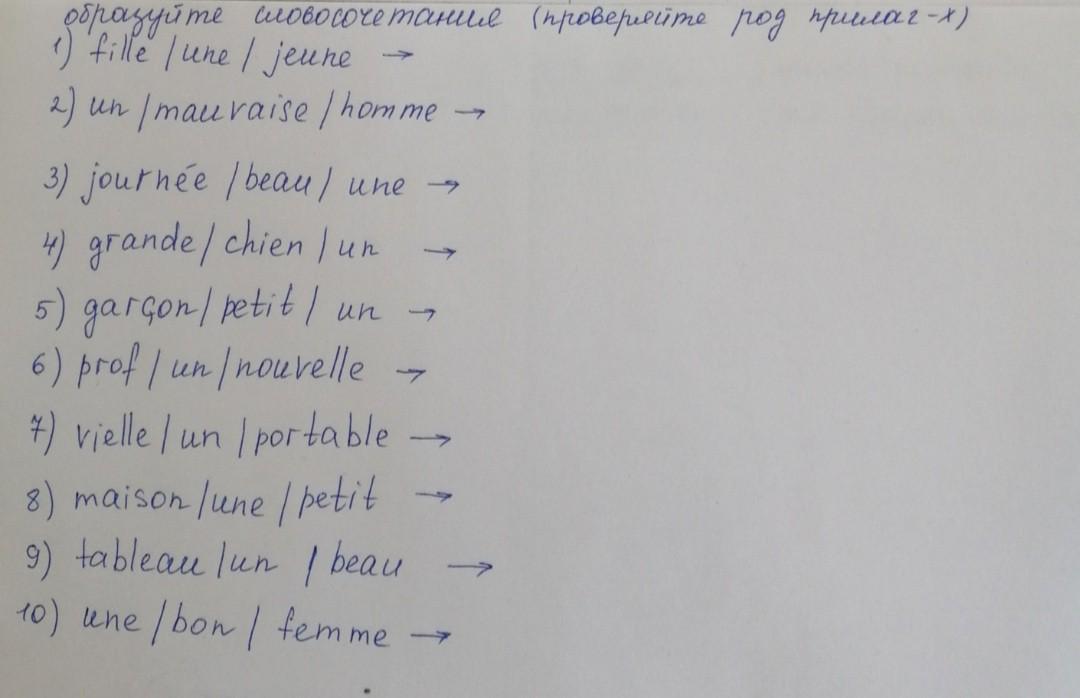 образуйте словосочетания (проверяйте род прилаг-х)
1) fille / une / jeune →
2) un / mauvaise / homme →
3) journée / beau / une →
4) grande / chien / un →
5) garçon / petit / un →
6) prof / un / nouvelle →
7) vielle / un / portable →
8) maison / une / petit →
9) tableau / un / beau →
10) une / bon / femme →